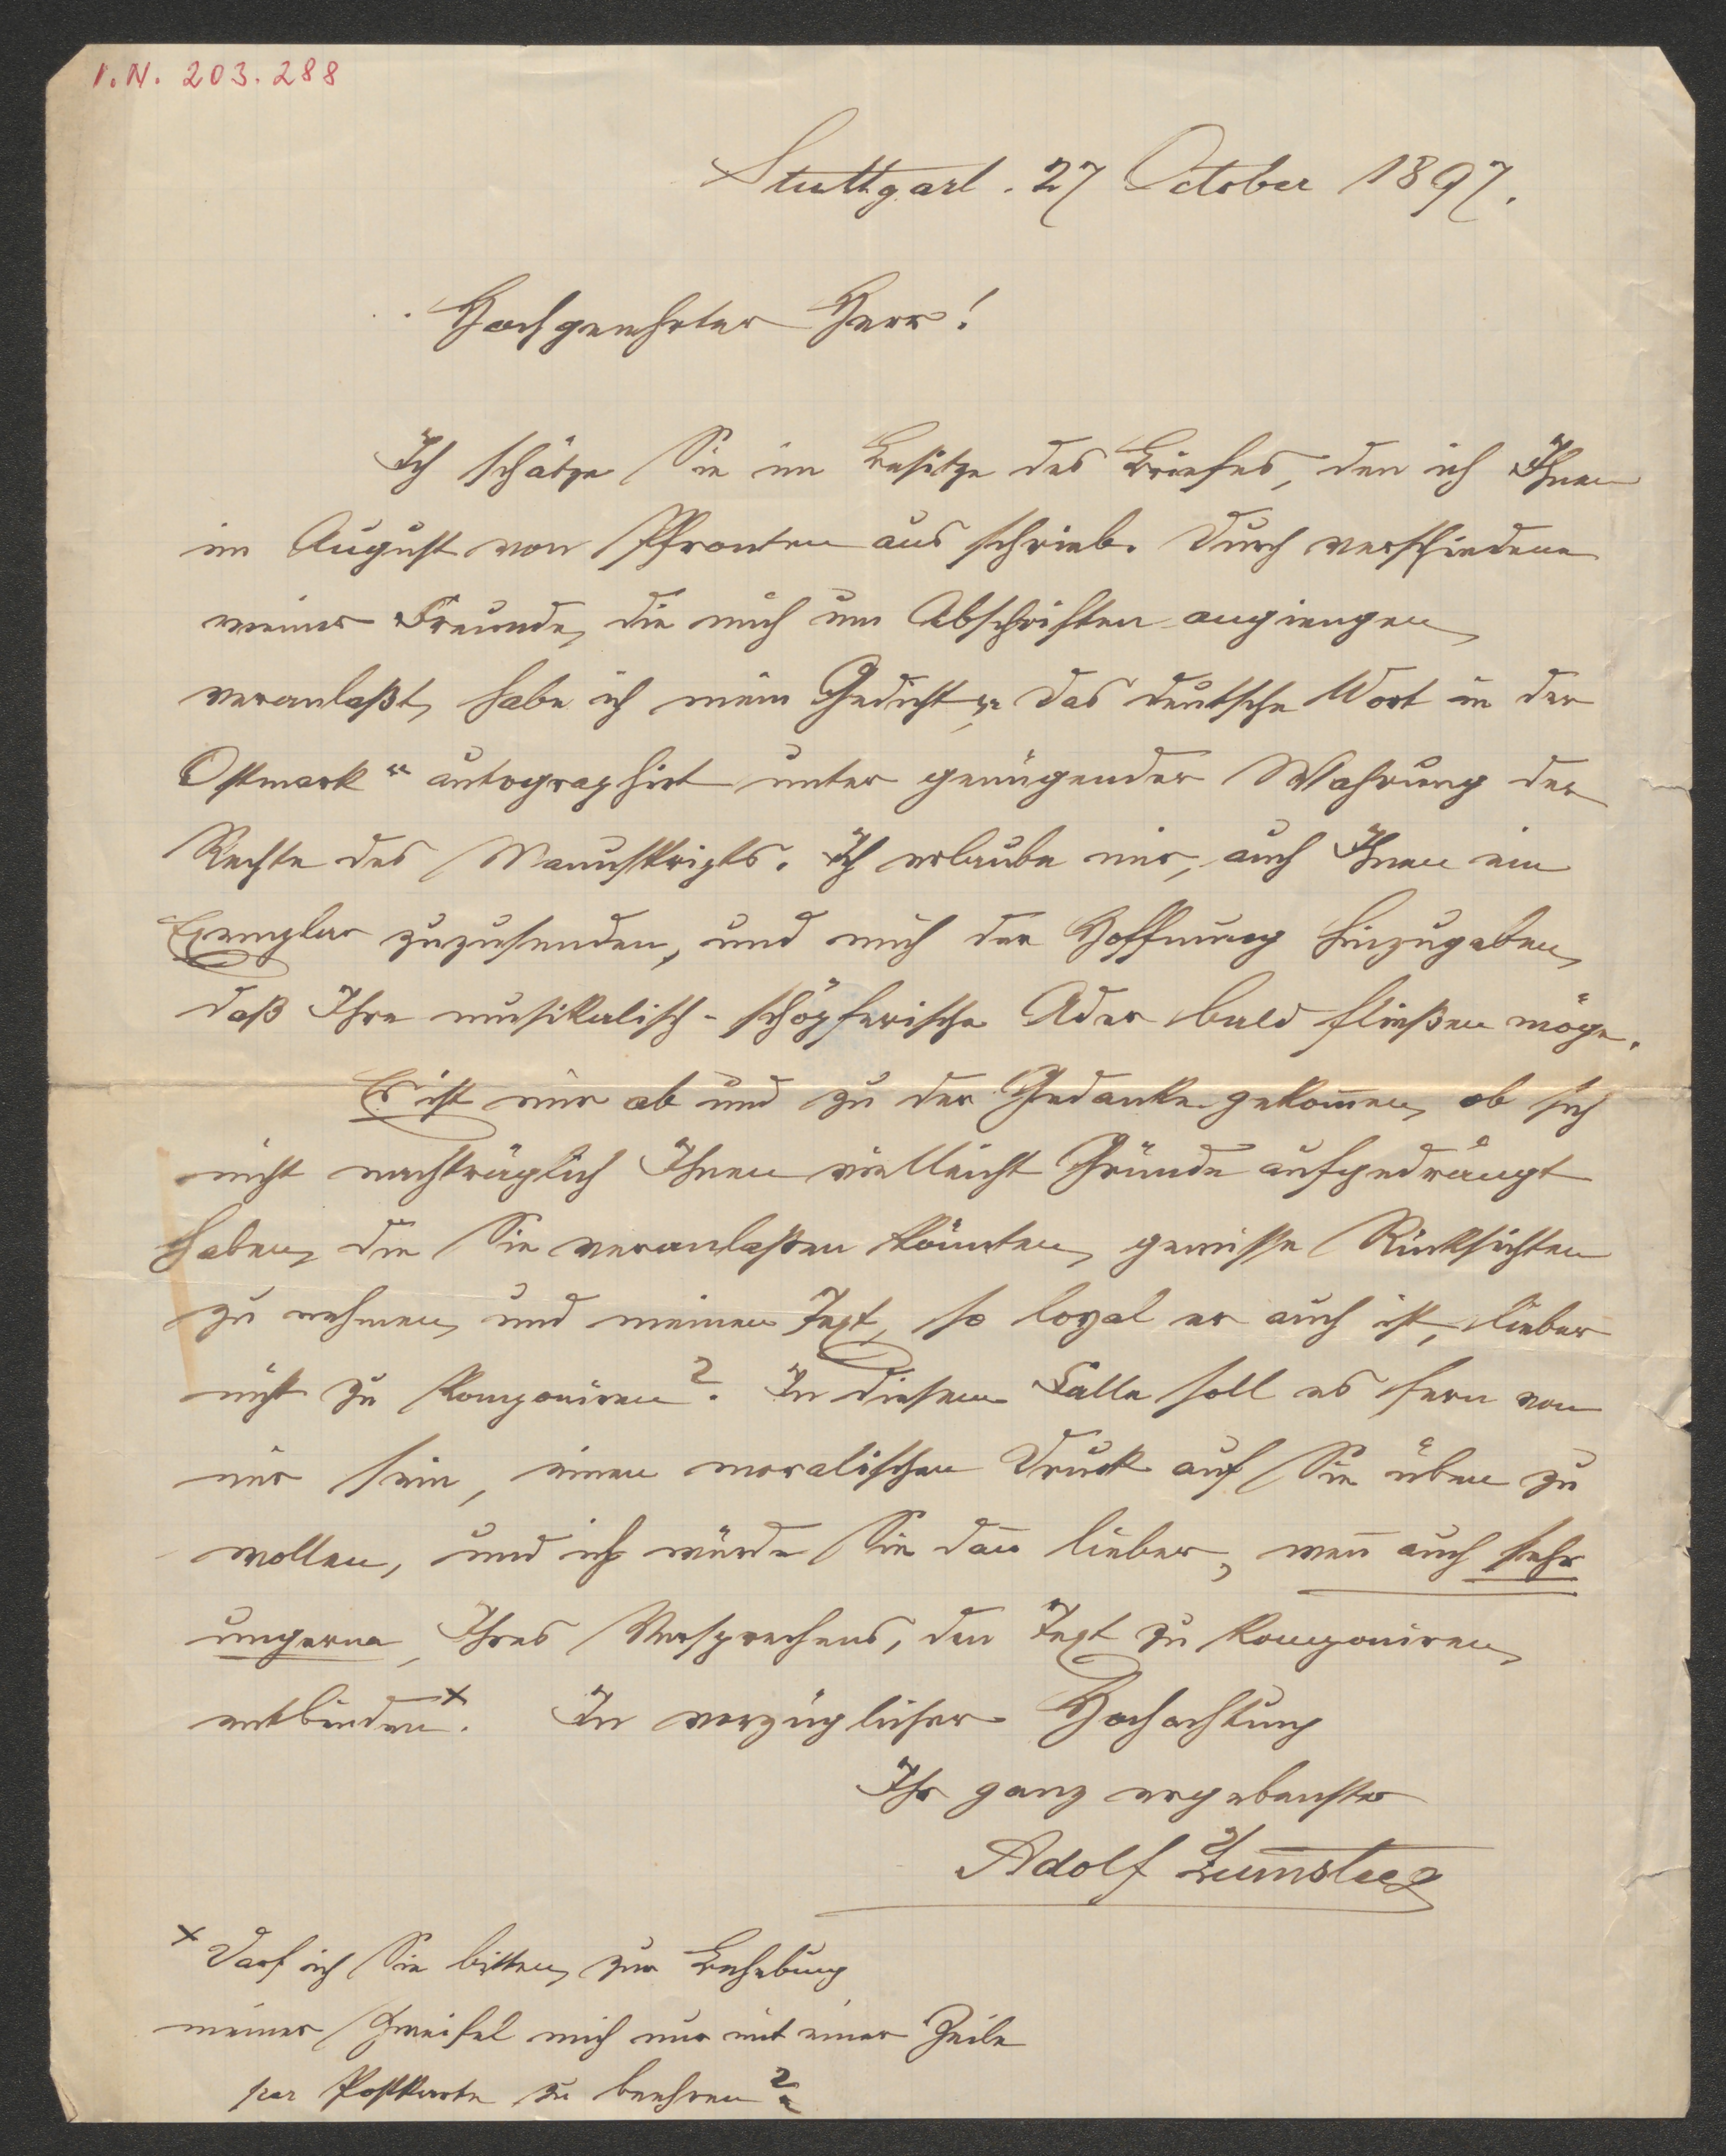 I.N. 203.288
Stuttgart. 27 October 1897.
Hochgeehrter Herr!
Ich schätze Sie im Besitze des Briefes, den ich Ihnen
im August von Pfronten aus schrieb. Durch verschiedene
meiner Freunde, die mich um Abschriften angiengen,
veranlaßt, habe ich mein Gedicht „Das deutsche Wort in der
Ostmark“ autographirt unter genügender Wahrung der
Rechte des Manuskripts. Ich erlaube mir, auch Ihnen ein
Exemplar zuzusenden, und mich der Hoffnung hinzugeben,
daß Ihre musikalisch-schöpferische Ader bald fließen möge.
Es ist mir ab und zu der Gedanke gekom̅en, ob sich
nicht nachträglich Ihnen vielleicht Gründe aufgedrängt
haben, die Sie veranlaßen könnten, gewisse Rücksichten
zu nehmen, und meinen Text, so loyal er auch ist, lieber
nicht zu komponiren? In diesem Falle soll es fern von
mir sein, einen moralischen Druck auf Sie üben zu
wollen, und ich würde Sie dan̅ lieber, wen̅ auch sehr
ungerne, Ihres Versprechens, den Text zu komponiren,
entbinden.ˣ In vorzüglicher Hochachtung
Ihr ganz ergebenster
Adolf Zum̅steeg
ˣ Darf ich Sie bitten, zur Behebung
meiner Zweifel mich nur mit einer Zeile
per Postkarte zu beehren?